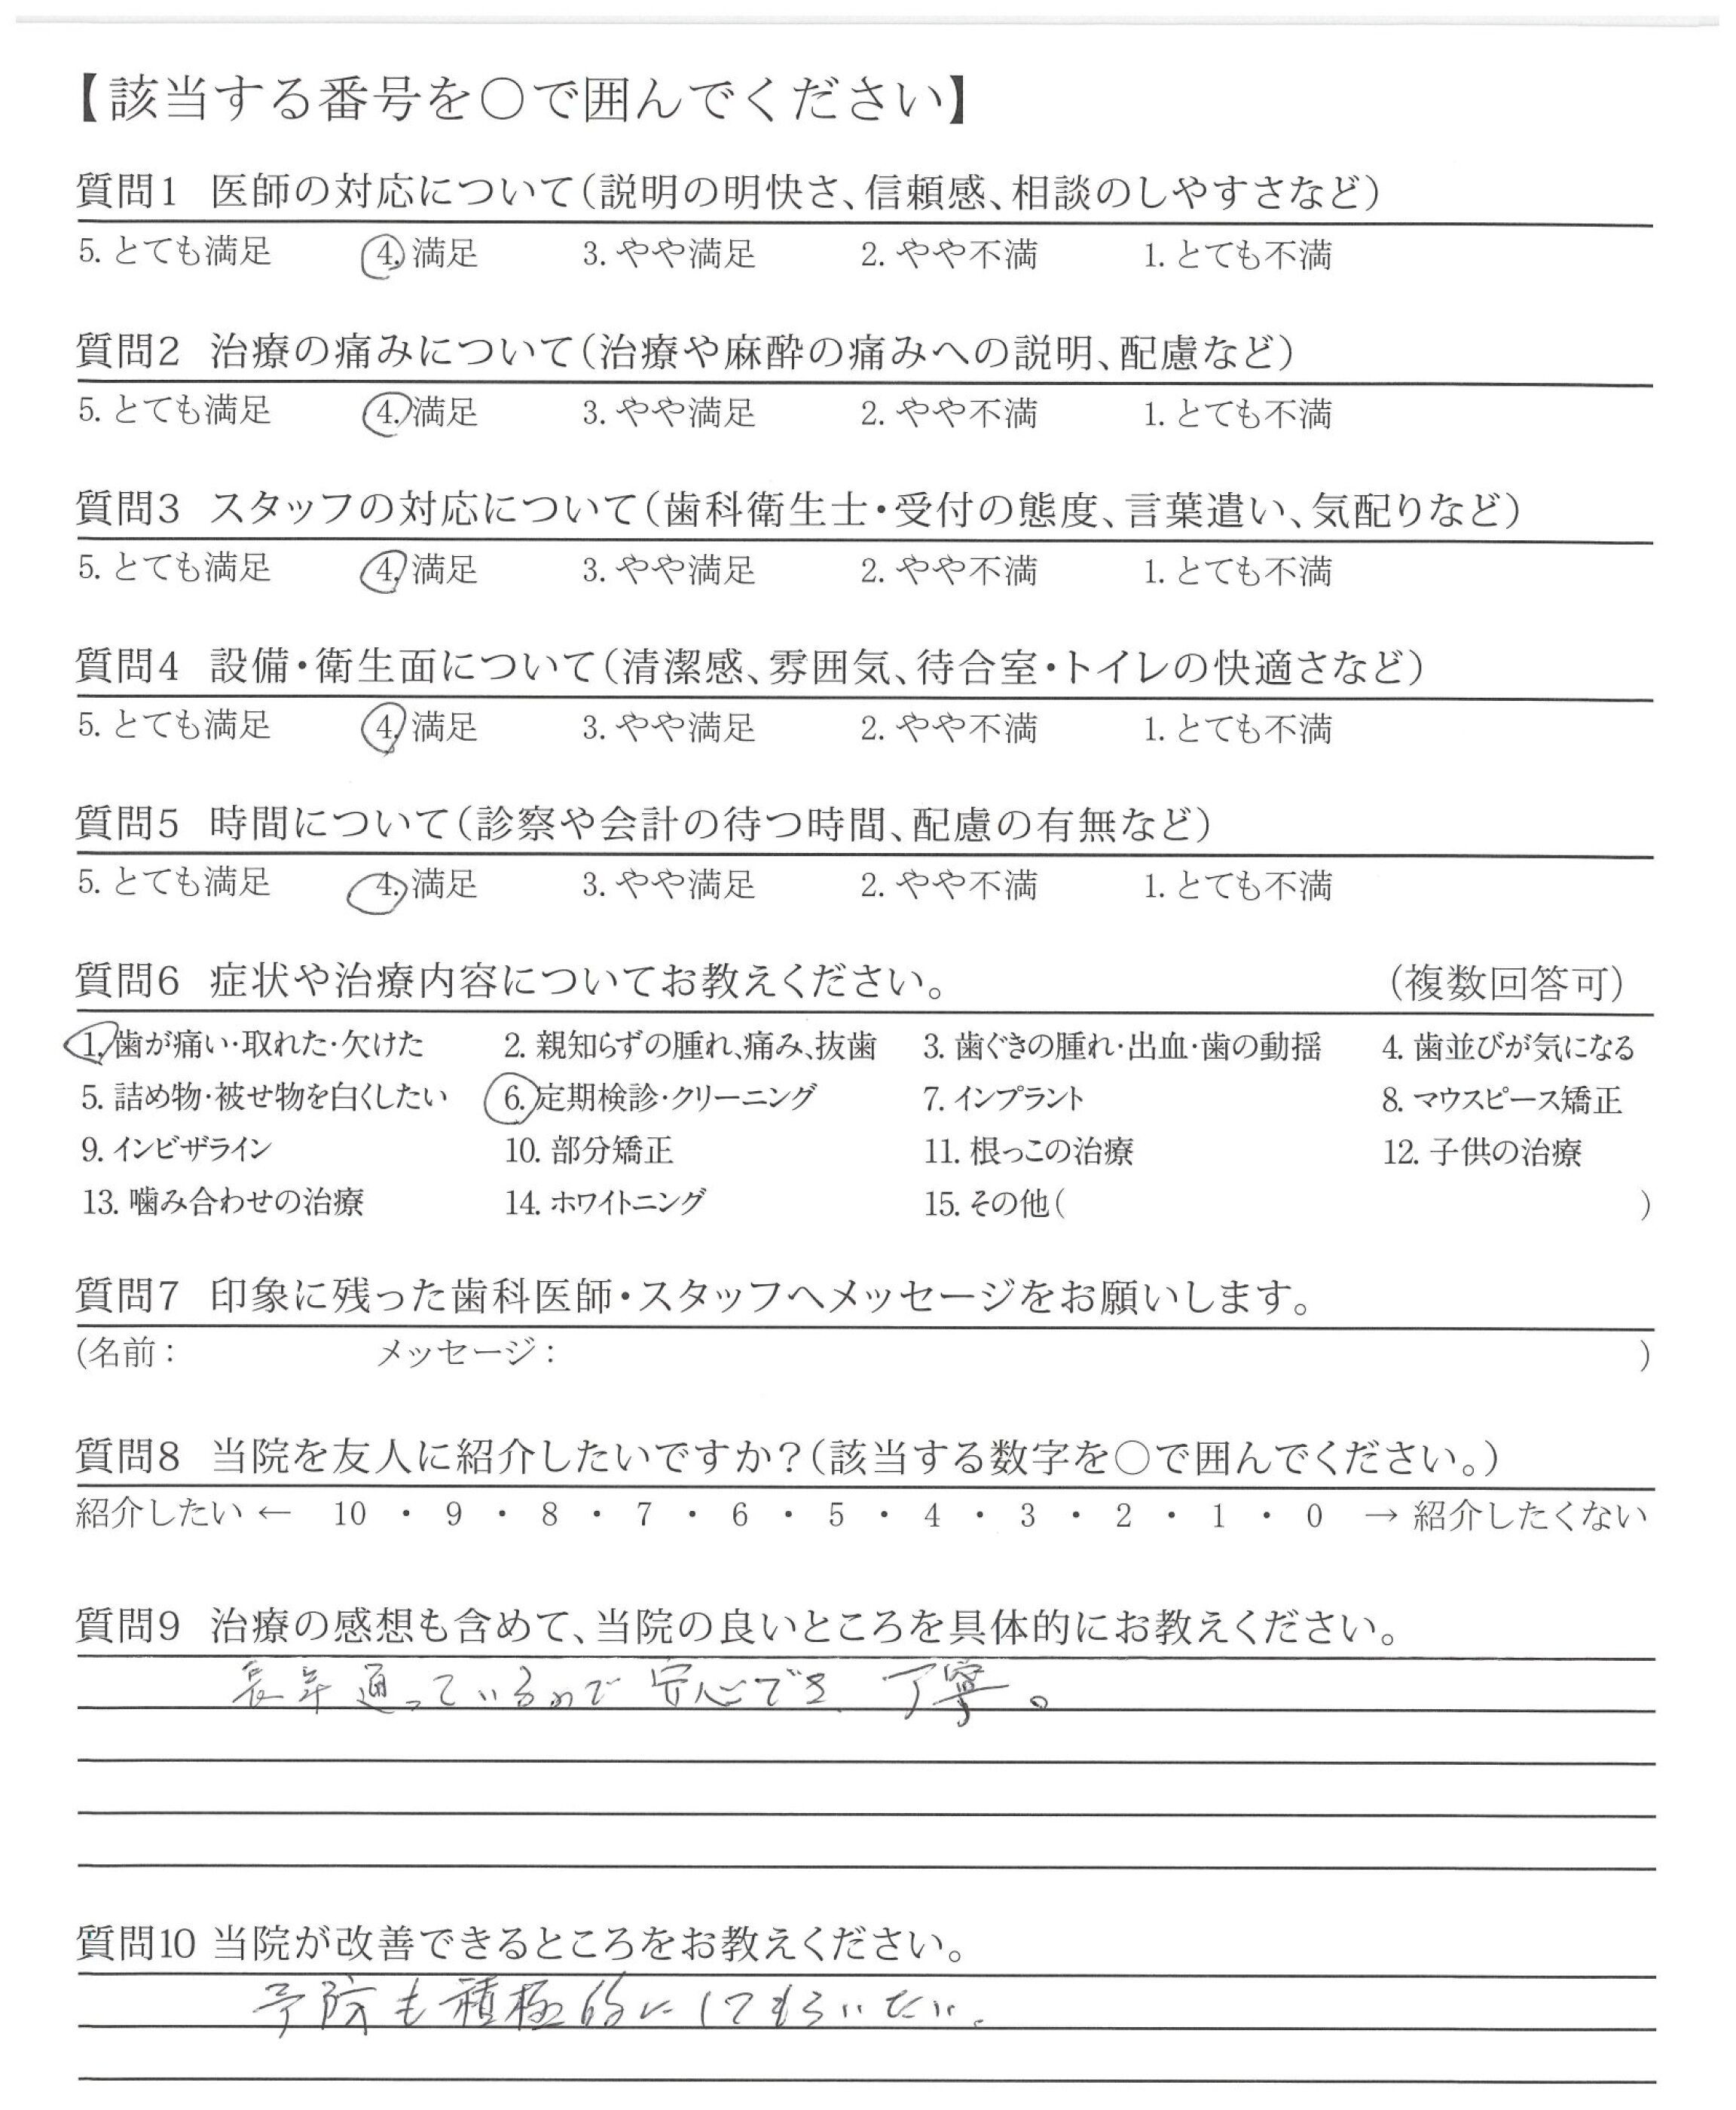 【該当する番号を○で囲んでください】
質問1 医師の対応について(説明の明快さ、信頼感、相談のしやすさなど)
5. とても満足 4. 満足 3. やや満足 2. やや不満 1. とても不満
質問2 治療の痛みについて(治療や麻酔の痛みへの説明、配慮など)
5. とても満足 4. 満足 3. やや満足 2. やや不満 1. とても不満
質問3 スタッフの対応について(歯科衛生士・受付の態度、言葉遣い、気配りなど)
5. とても満足 4. 満足 3. やや満足 2. やや不満 1. とても不満
質問4 設備・衛生面について(清潔感、雰囲気、待合室・トイレの快適さなど)
5. とても満足 4. 満足 3. やや満足 2. やや不満 1. とても不満
質問5 時間について(診察や会計の待つ時間、配慮の有無など)
5. とても満足 4. 満足 3. やや満足 2. やや不満 1. とても不満
質問6 症状や治療内容についてお教えください。 (複数回答可)
1. 歯が痛い・取れた・欠けた 2. 親知らずの腫れ、痛み、抜歯 3. 歯ぐきの腫れ・出血・歯の動揺 4. 歯並びが気になる
5. 詰め物・被せ物を白くしたい 6. 定期検診・クリーニング 7. インプラント 8. マウスピース矯正
9. インビザライン 10. 部分矯正 11. 根っこの治療 12. 子供の治療
13. 噛み合わせの治療 14. ホワイトニング 15. その他( )
質問7 印象に残った歯科医師・スタッフへメッセージをお願いします。
(名前: メッセージ: )
質問8 当院を友人に紹介したいですか?(該当する数字を○で囲んでください。)
紹介したい ← 10 ・ 9 ・ 8 ・ 7 ・ 6 ・ 5 ・ 4 ・ 3 ・ 2 ・ 1 ・ 0 → 紹介したくない
質問9 治療の感想も含めて、当院の良いところを具体的にお教えください。
長年通っているので安心でき、丁寧。
質問10 当院が改善できるところをお教えください。
予防も積極的にしてもらいたい。